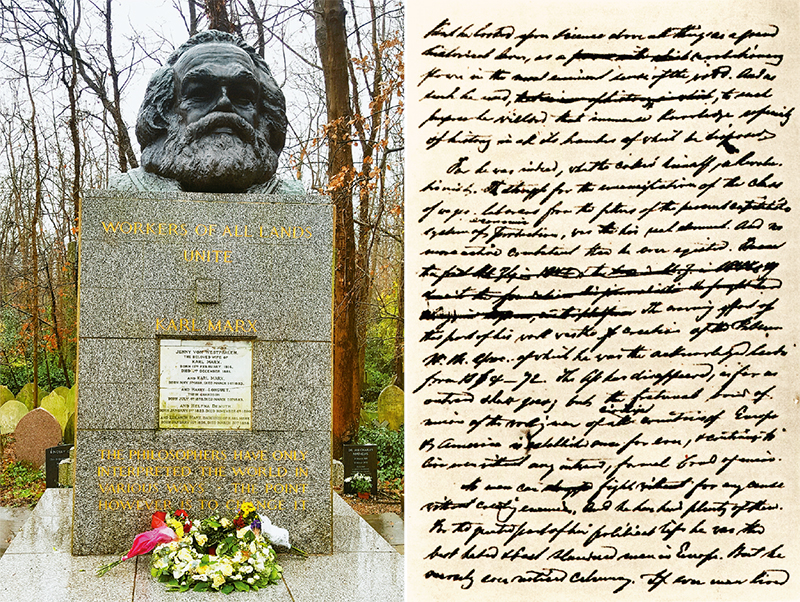 WORKERS OF ALL LANDS
UNITE
KARL MARX
JENNY VON WESTPHALEN,
THE BELOVED WIFE OF
KARL MARX.
BORN 12TH FEBRUARY 1814,
DIED 2ND DECEMBER 1881.
AND KARL MARX.
BORN MAY 5TH 1818, DIED MARCH 14TH 1883.
AND HARRY LONGUET,
THEIR GRANDSON
BORN JULY 4TH 1878, DIED MARCH 20TH 1883.
AND HELENA DEMUTH
THE PHILOSOPHERS HAVE ONLY
INTERPRETED THE WORLD IN
VARIOUS WAYS · THE POINT
HOWEVER IS TO CHANGE IT
For he looked upon science above all things as a grand
historical lever, as a revolutionary
power in the most eminent sense of the word. And as
such he used, to such
purpose he wielded that immense knowledge, especially
of history in all its branches of which he disposed
For he was indeed, what he called himself, a Revolu-
tionist. The struggle for the emancipation of the class
of wages-labourers from the fetters of the present capitalist
system of economic production, was his real element. And no
more active combatant than he ever existed.
The crowning effort of
this part of his work was the creation of the Intern.
W. M. Assn. of which he was the acknowledged leader
from 1864–72. The has disappeared, as far as
outward show goes; but the fraternal bond of
union of the working men of all civilized countries of Europe
& America is established once for ever, & continues to
live even without any outward, formal bond of union.
No man can fight for any cause
without creating enemies. And he has had plenty of them.
For the greater part of his political life he was the
best hated & best slandered man in Europe. But he
scarcely ever noticed calumny. If ever man lived